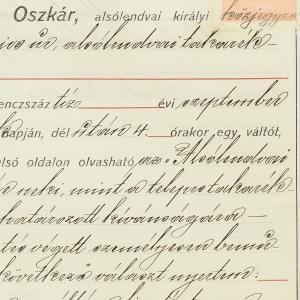 Oszkár, alsólendvai királyi közjegyző
úr, alsólendvai takarék-
enczszáz tíz évi szeptember
napján, dél után 4 órakor egy váltót,
első oldalon olvasható az: Alsólendvai
neki, mint a telepes takarék-
határozott kívánságára
végett személyesen
következő választ nyertem: